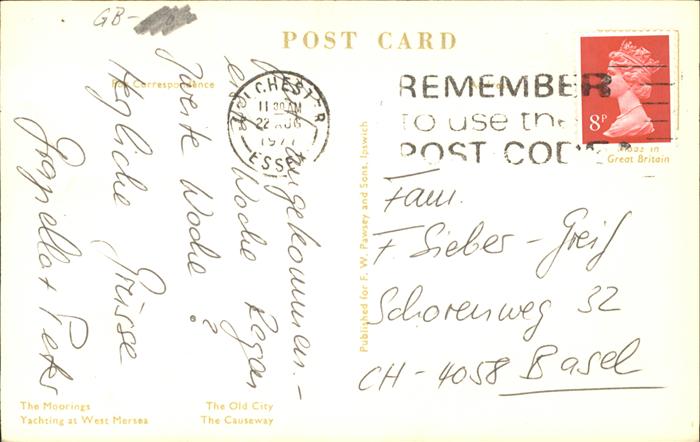 GB-
POST CARD
For Correspondence
COLCHESTER
11 30 AM
22 AUG
197
ESSEX
REMEMBER
to use the
POST CODE
8P
Great Britain
angekommen. -
erste Woche Regen
zweite Woche ?
Herzliche Grüsse
Peter
Published for F. W. Pawsey and Sons, Ipswich
Fam.
F. Sieber - Greif
Schorenweg 32
CH - 4058 Basel
The Moorings
Yachting at West Mersea
The Old City
The Causeway